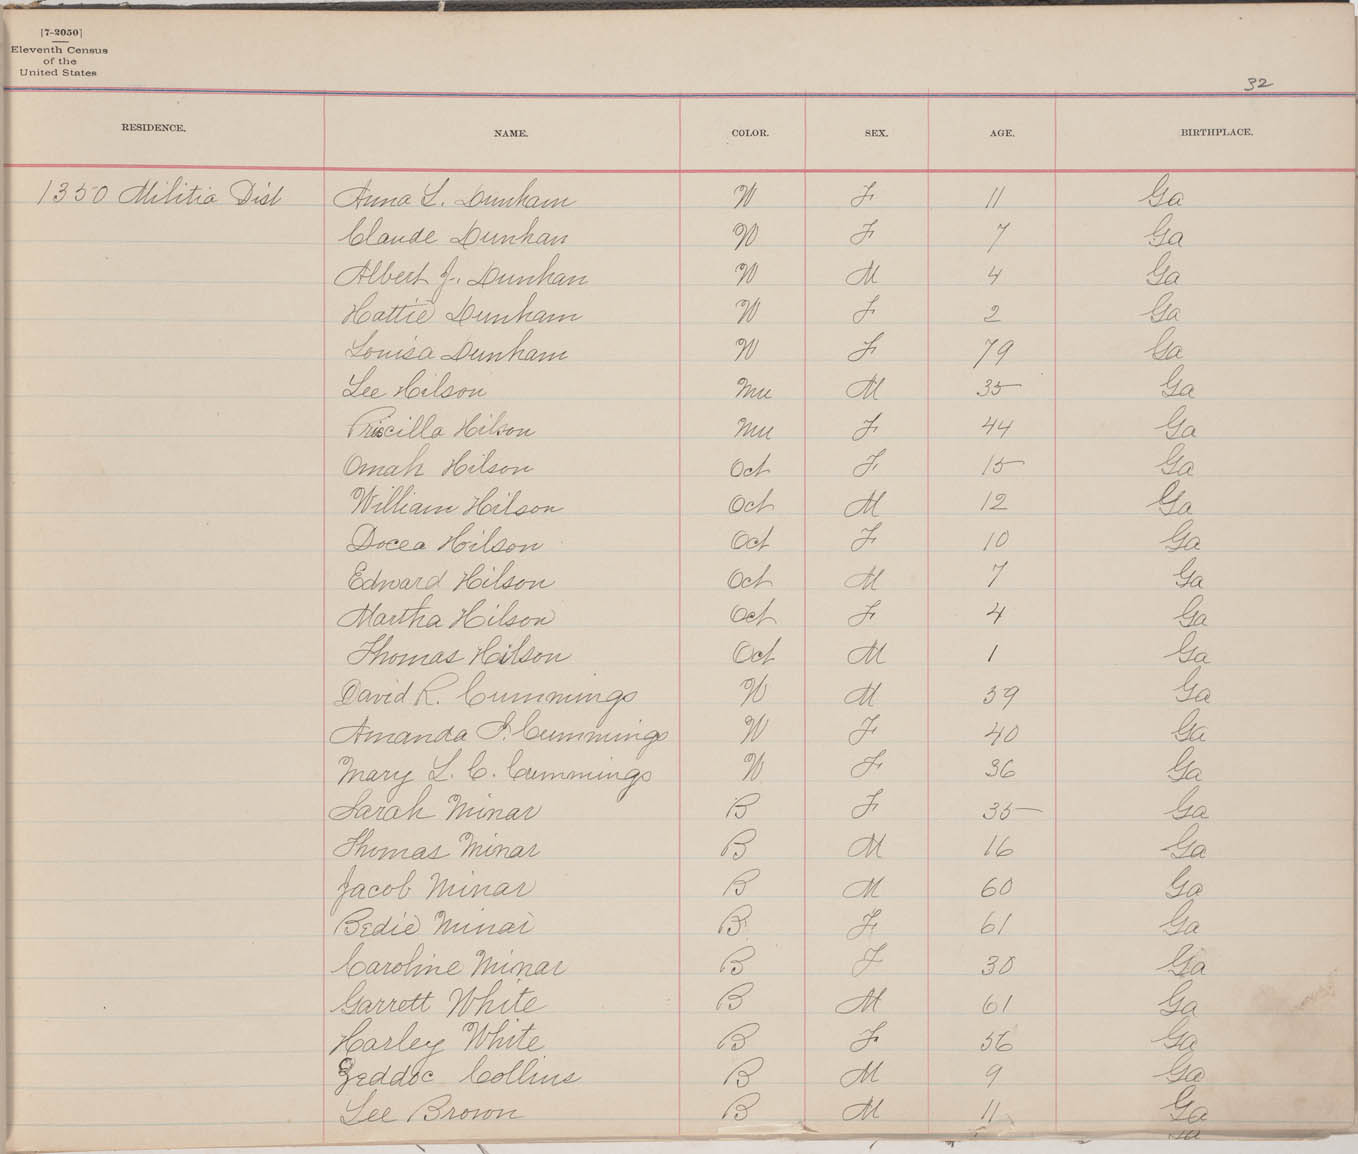 [7-2050]
Eleventh Census
of the
United States
32
RESIDENCE. NAME. COLOR. SEX. AGE. BIRTHPLACE.
1350 Militia Dist Anna L. Dunham W F 11 Ga
Claude Dunhan W F 7 Ga
Albert J. Dunhan W M 4 Ga
Hattie Dunham W F 2 Ga
Louisa Dunham W F 79 Ga
Lee Hilson Mu M 35 Ga
Priscilla Hilson Mu F 44 Ga
Omah Hilson Oct F 15 Ga
William Hilson Oct M 12 Ga
Docea Hilson Oct F 10 Ga
Edward Hilson Oct M 7 Ga
Martha Hilson Oct F 4 Ga
Thomas Hilson Oct M 1 Ga
David R. Cummings W M 39 Ga
Amanda J. Cummings W F 40 Ga
Mary L. C. Cummings W F 36 Ga
Sarah Minar B F 35 Ga
Thomas Minar B M 16 Ga
Jacob Minar B M 60 Ga
Bedie Minar B F 61 Ga
Caroline Minar B F 30 Ga
Garrett White B M 61 Ga
Harley White B F 56 Ga
Collins B M 9 Ga
Lee Brown B M 11 Ga